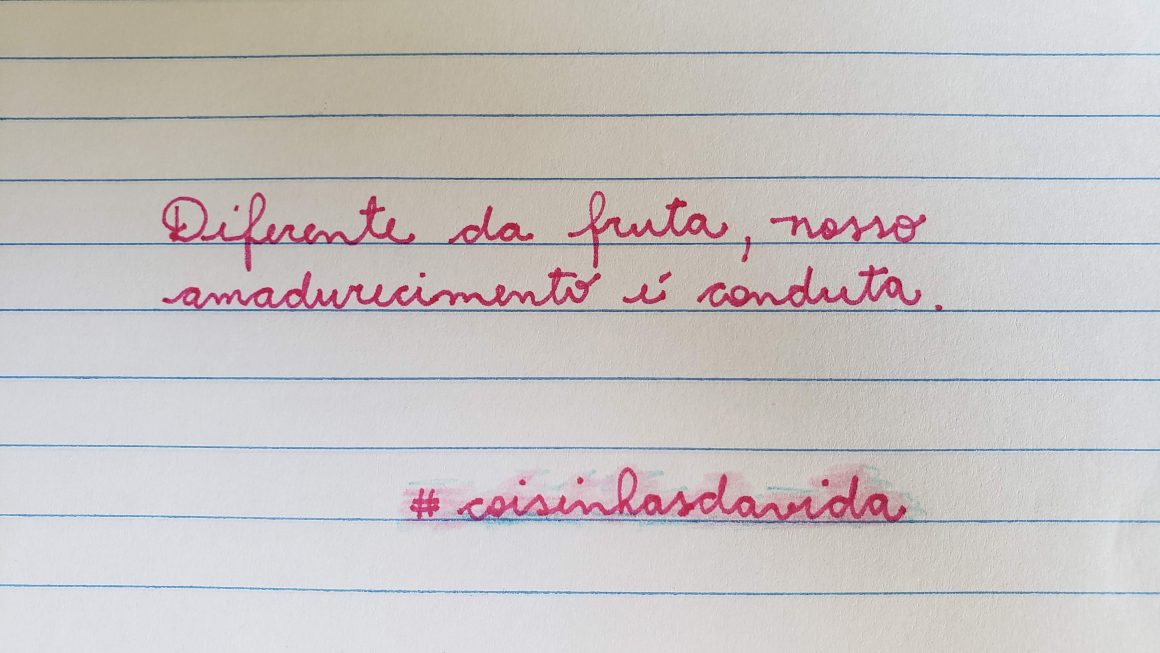 Diferente da fruta, nosso
amadurecimento é conduta.
#coisinhasdavida